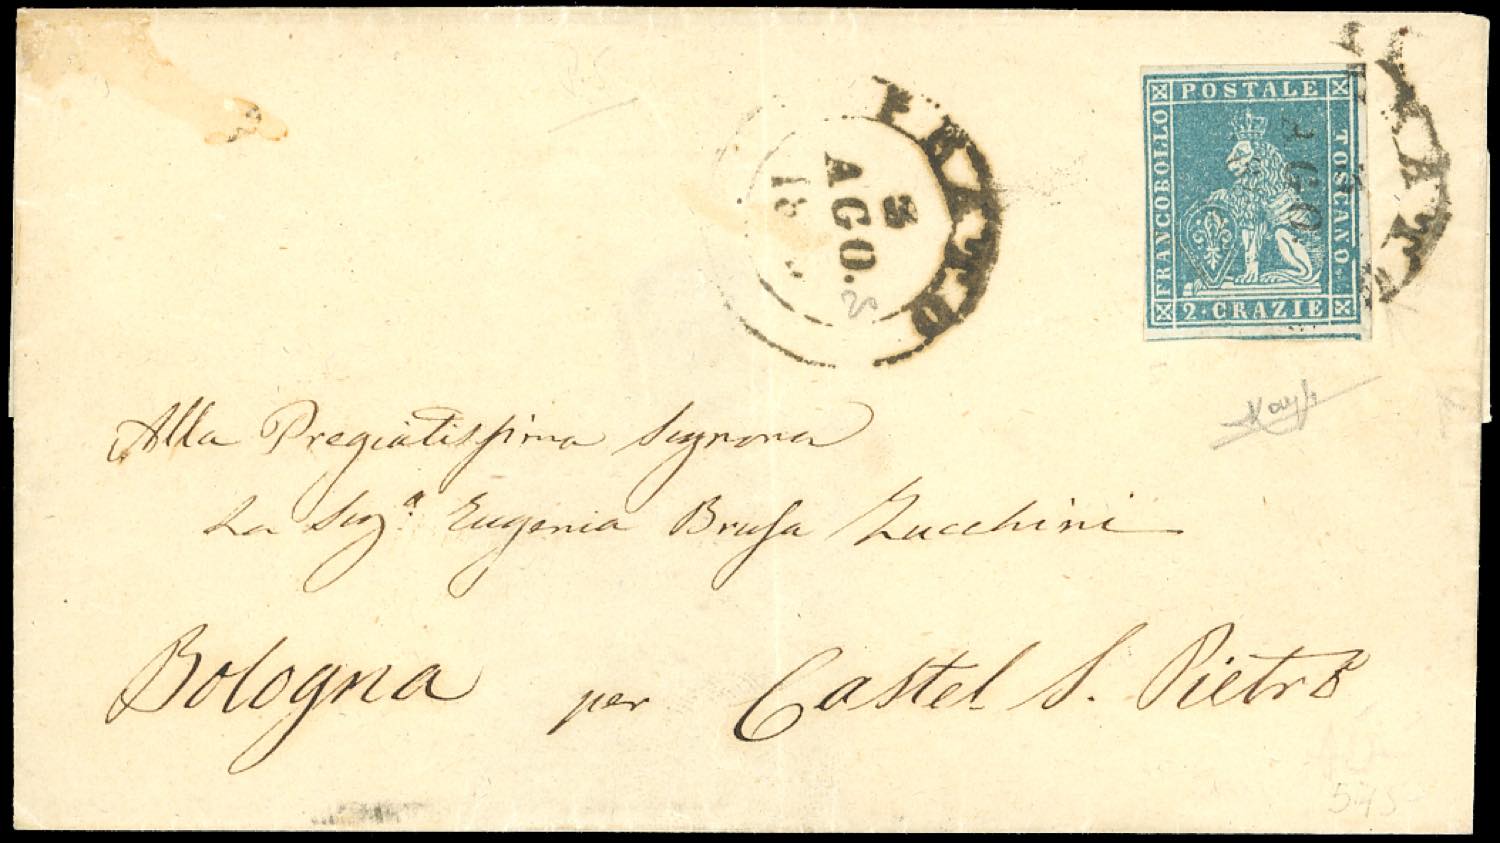 PRATO
3
AGO.
18
20
FRANCOBOLLO POSTALE TOSCANO
2 · CRAZIE
PRATO
AGO
Alla Pregiatissima Signora
La Sig.ª Eugenia Brusa Zucchini
Bologna per Castel S. Pietro
575